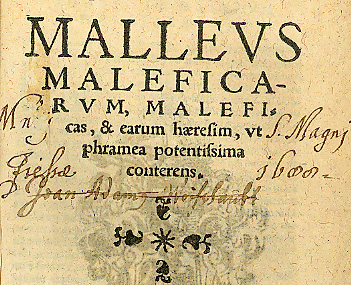 MALLEVS
MALEFICA-
RVM, MALEFI-
cas, & earum hæresim, vt
phramea potentissima
conterens.
S. Magni
1600
Joan Adam